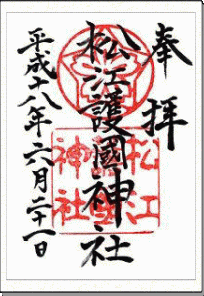 奉拝
松江護國神社
平成十八年六月二十一日
松江
護國
神社